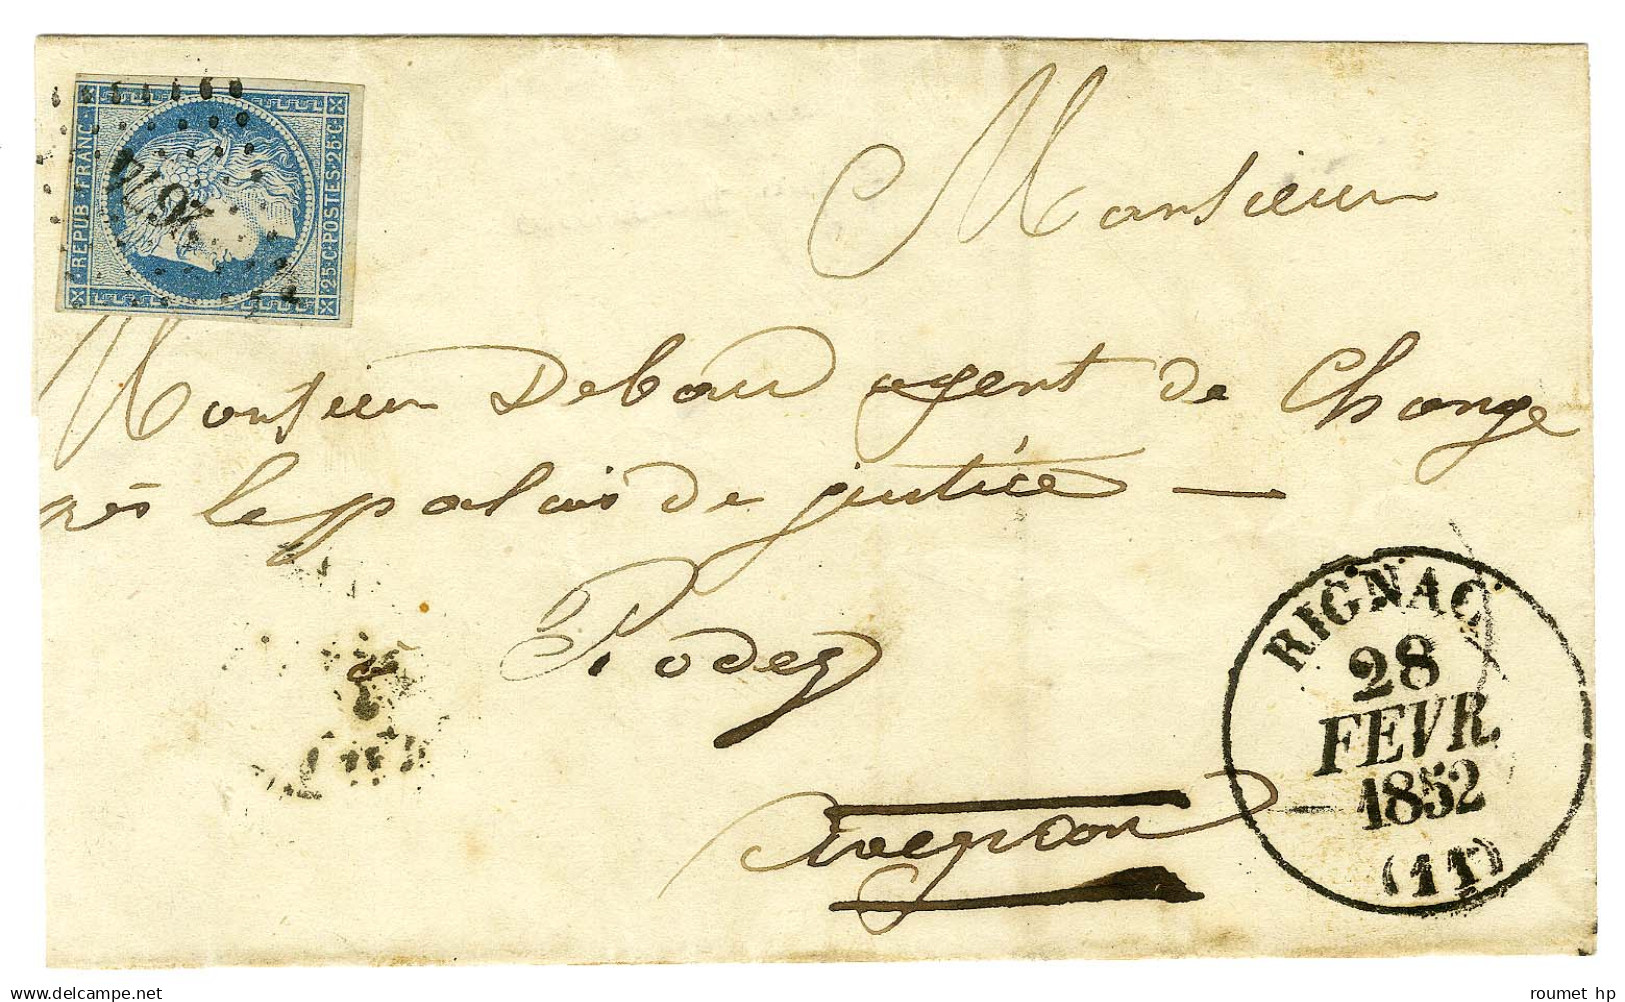 REPUB·FRANC·
25·C·POSTES·25·C·
2674
Monsieur
Monsieur Debau agent de Change
près le palais de justice —
Rodez
Aveyron
RIGNAC
28
FEVR.
1852
(11)
www.delcampe.net
roumet hp